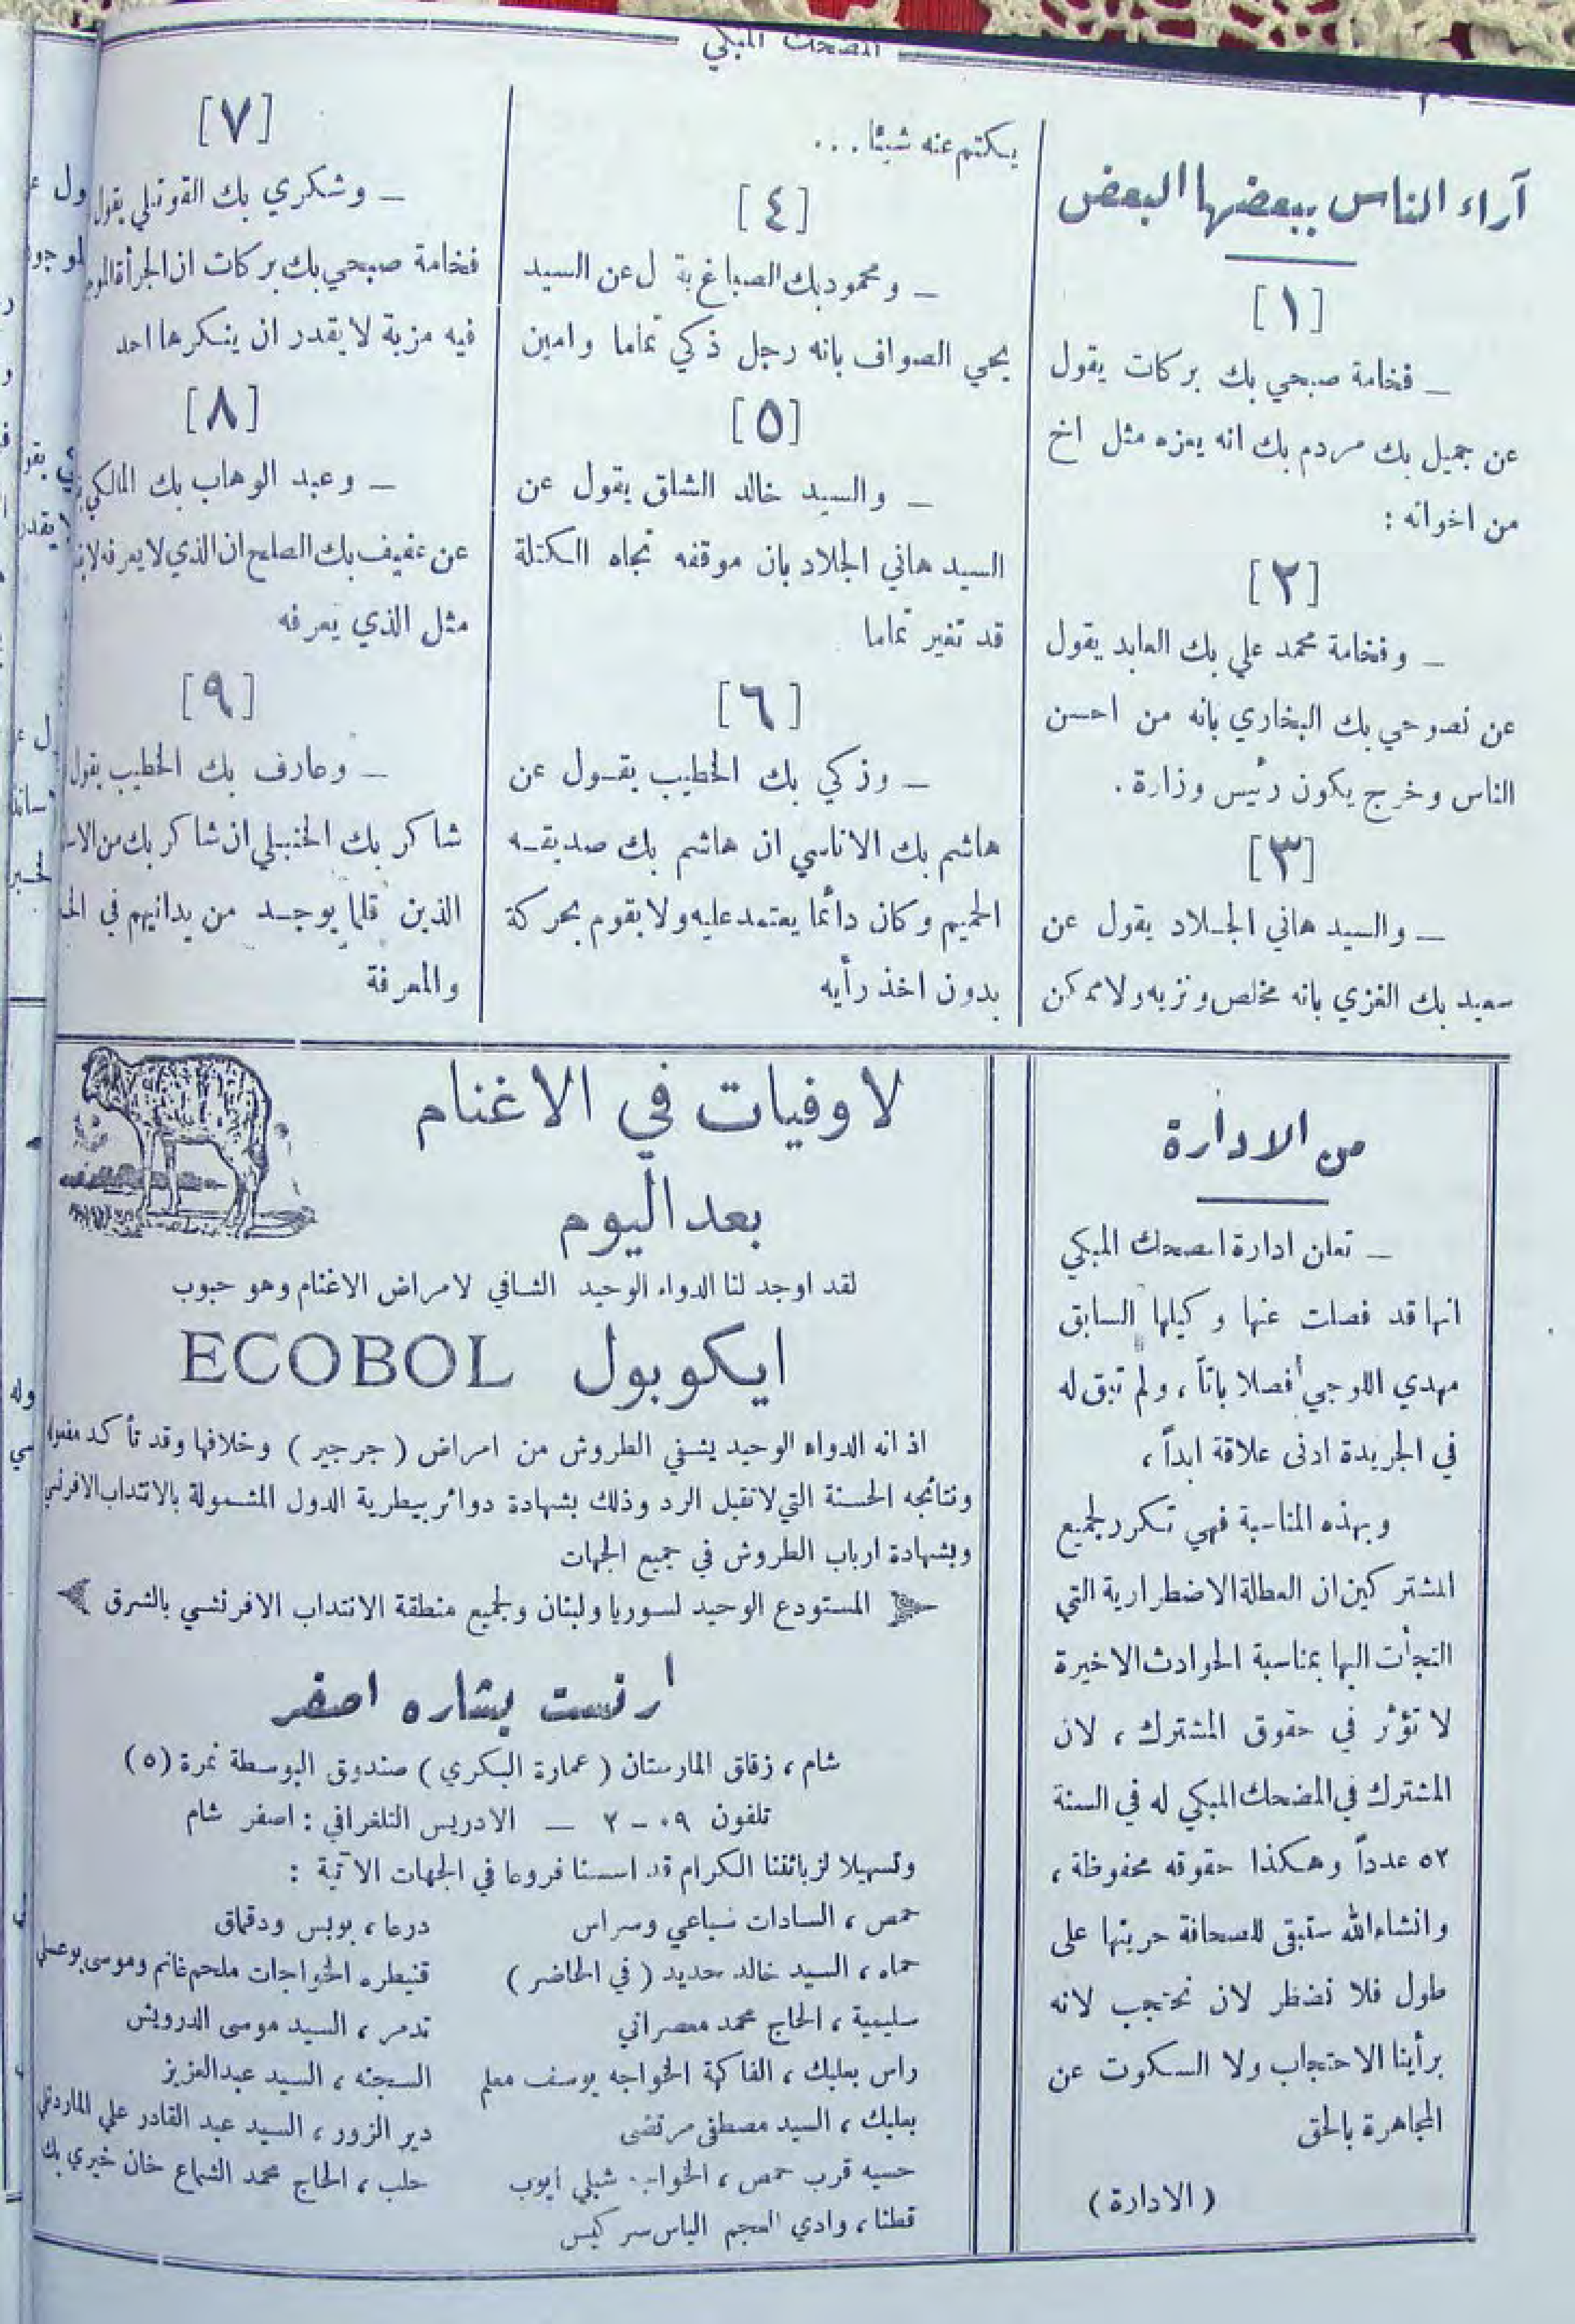 المضحك المبكي
آراء الناس ببعضها البعض
[١]
ــ فخامة صبحي بك بركات يقول
عن جميل بك مردم بك انه يعزه مثل اخ
من اخوانه :
[٢]
ــ وفخامة محمد علي بك العابد يقول
عن نصوحي بك البخاري بانه من احسن
الناس وخرج يكون رئيس وزارة .
[٣]
ــ والسيد هاني الجلاد يقول عن
سعيد بك الغزي بانه مخلص ونزيه ولا ممكن
يكتم عنه شيئا . . .
[٤]
ــ ومحمود بك الصباغ ية ل عن السيد
يحي الصواف بانه رجل ذكي تماما وامين
[٥]
ــ والسيد خالد الشلق يقول عن
السيد هاني الجلاد بان موقفه تجاه الكتلة
قد تغير تماما
[٦]
ــ وزكي بك الخطيب يقول عن
هاشم بك الاتاسي ان هاشم بك صديقه
الحميم وكان دائما يعتمد عليه ولا يقوم بحركة
بدون اخذ رأيه
[٧]
ــ وشكري بك القوتلي يقول
فخامة صبحي بك بركات ان الجرأة
فيه مزية لا يقدر ان ينكرها احد
[٨]
ــ وعبد الوهاب بك المالكي
عن عفيف بك الصلح ان الذي لا يعرفه
مثل الذي يعرفه
[٩]
ــ وعارف بك الخطيب يقول
شاكر بك الحنبلي ان شاكر بك من
الذين قلما يوجد من يدانيهم في
والمعرفة
من الادارة
ــ تعلن ادارة المضحك المبكي
انها قد فصلت عنها وكيلها السابق
مهدي اللوجي فصلا باتاً ، ولم تبق له
في الجريدة ادنى علاقة ابداً ،
وبهذه المناسبة فهي تكرر لجميع
المشتركين ان العطالة الاضطرارية التي
التجأت اليها بمناسبة الحوادث الاخيرة
لا تؤثر في حقوق المشترك ، لان
المشترك في المضحك المبكي له في السنة
٥٢ عدداً وهكذا حقوقه محفوظة ،
وانشاء الله ستبقى للصحافة حريتها على
طول فلا نضطر لان نحتجب لانه
برأينا الاحتجاب ولا السكوت عن
المجاهرة بالحق
( الادارة )
لا وفيات في الاغنام
بعد اليوم
لقد اوجد لنا الدواء الوحيد الشافي لامراض الاغنام وهو حبوب
ايكوبول ECOBOL
اذ انه الدواء الوحيد يشفي الطروش من امراض ( جرجير ) وخلافها وقد تأكد
ونتائجه الحسنة التي لا تقبل الرد وذلك بشهادة دوائر بيطرية الدول المشمولة بالانتداب الافرنسي
وبشهادة ارباب الطروش في جميع الجهات
المستودع الوحيد لسوريا ولبنان ولجميع منطقة الانتداب الافرنسي بالشرق
ارنست بشاره اصفر
شام ، زقاق المارستان ( عمارة البكري ) صندوق البوسطة نمرة (٥)
تلفون ٠٩ ــ ٢ ــ الادريس التلغرافي : اصفر شام
وتسهيلا لزبائننا الكرام قد اسسنا فروعا في الجهات الآتية :
حمص ، السادات سباعي وسراس
حماه ، السيد خالد حديد ( في الحاضر )
سليمية ، الحاج محمد معصراني
راس بعلبك ، الفاكهة الخواجه يوسف معلم
بعلبك ، السيد مصطفى مرتضى
حسيه قرب حمص ، شبلي ايوب
قطنا ، وادي العجم الياس سركيس
درعا ، بويس ودقماق
قنيطره الخواجات ملحم غانم وموسى بوعسلي
تدمر ، السيد موسى الدرويش
السجنه ، السيد عبد العزيز
دير الزور ، السيد عبد القادر علي
حلب ، الحاج محمد الشماع خان خيري بك